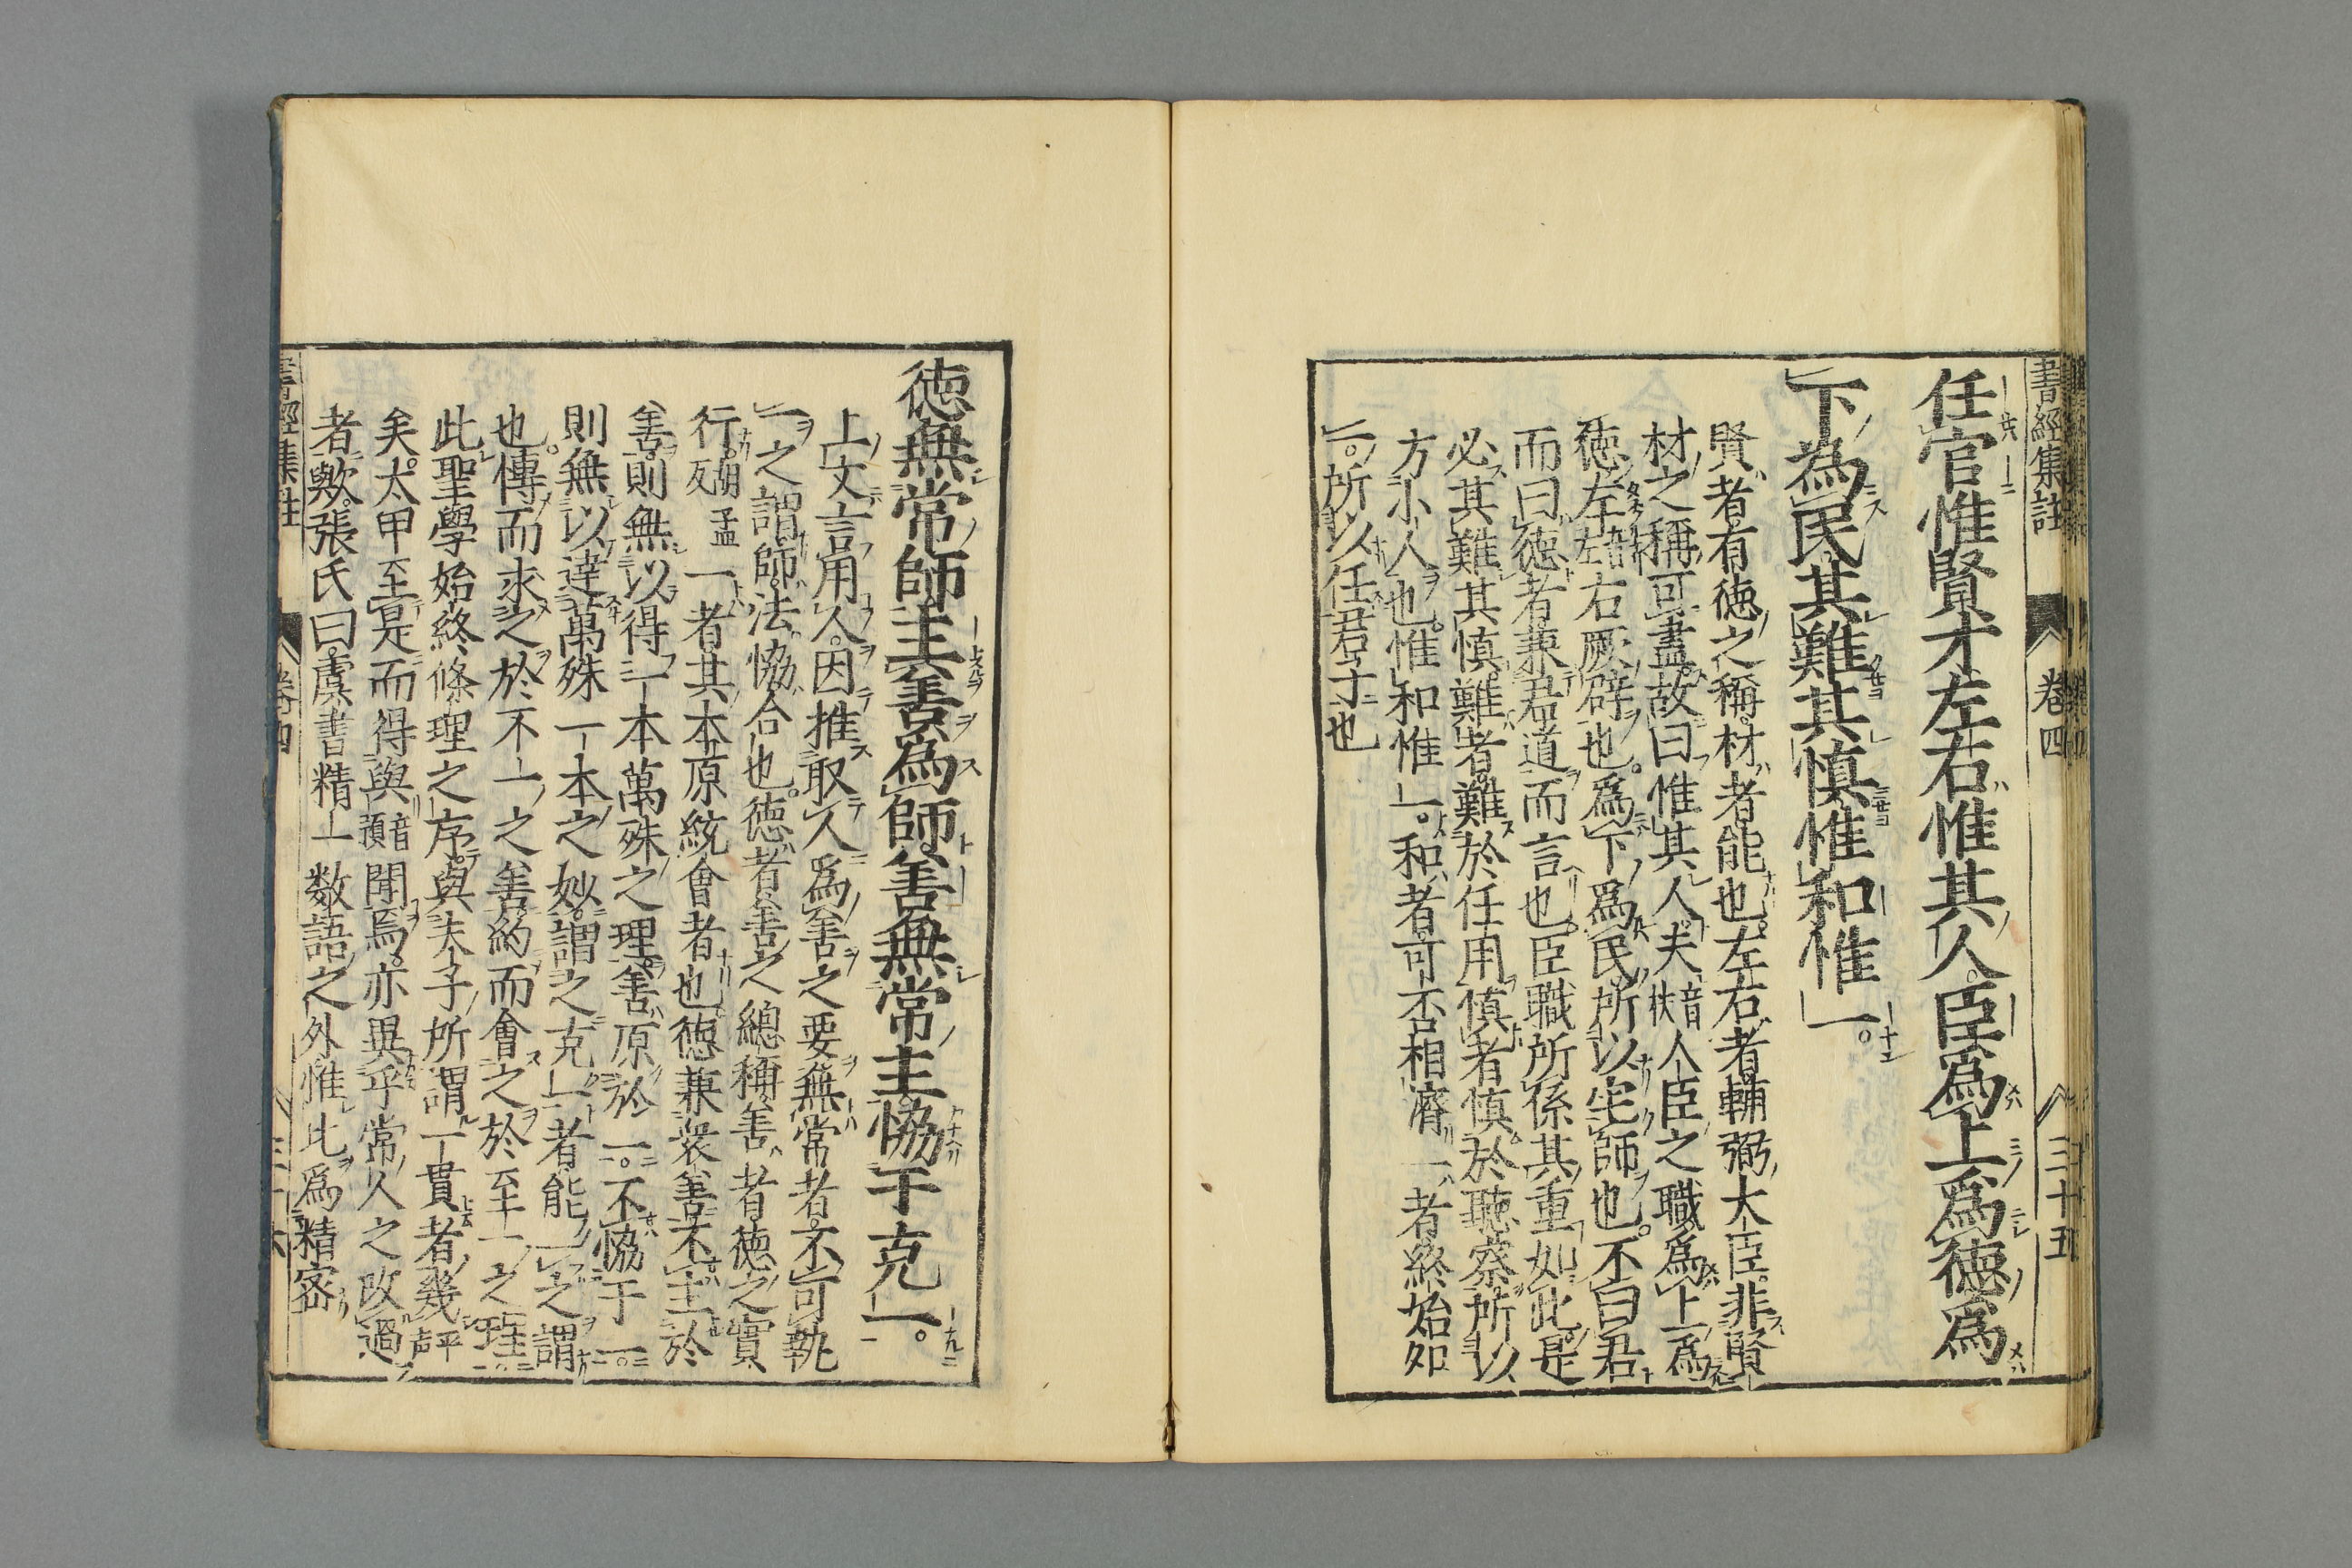 書經集註 卷四 三十五
任官惟賢才左右惟其人臣爲上爲德爲
下為民其難其慎惟和惟一
賢者有德之稱材者能也左右者輔弼大臣非賢
材之稱可盡故曰惟其人夫音扶人臣之職爲上爲
德左音佐右厥辟也爲下爲民所以宅師也不曰君
而曰德者兼君道而言也臣職所係其重如此是
必其難其慎難者難於任用慎者慎於聽察所以
方小人也惟和惟一和者可否相濟一者終始如
一所以任君子也
德無常師主善爲師善無常主協于克一
上文言用人因推取人爲善之要無常者不可執
一之謂師法協合也德者善之總稱善者德之實
行胡孟反一者其本原統會者也德兼衆善不主於
善則無以得一本萬殊之理善原於一不協于一
則無以達萬殊一本之妙謂之克一者能一之謂
也博而求之於不一之善約而會之於至一之理
此聖學始終條理之序與夫子所謂一貫者幾平聲
矣太甲至是而得與音預聞焉亦異乎常人之改過
者歟張氏曰虞書精一數語之外惟此爲精密
書經集註 卷四 三十六